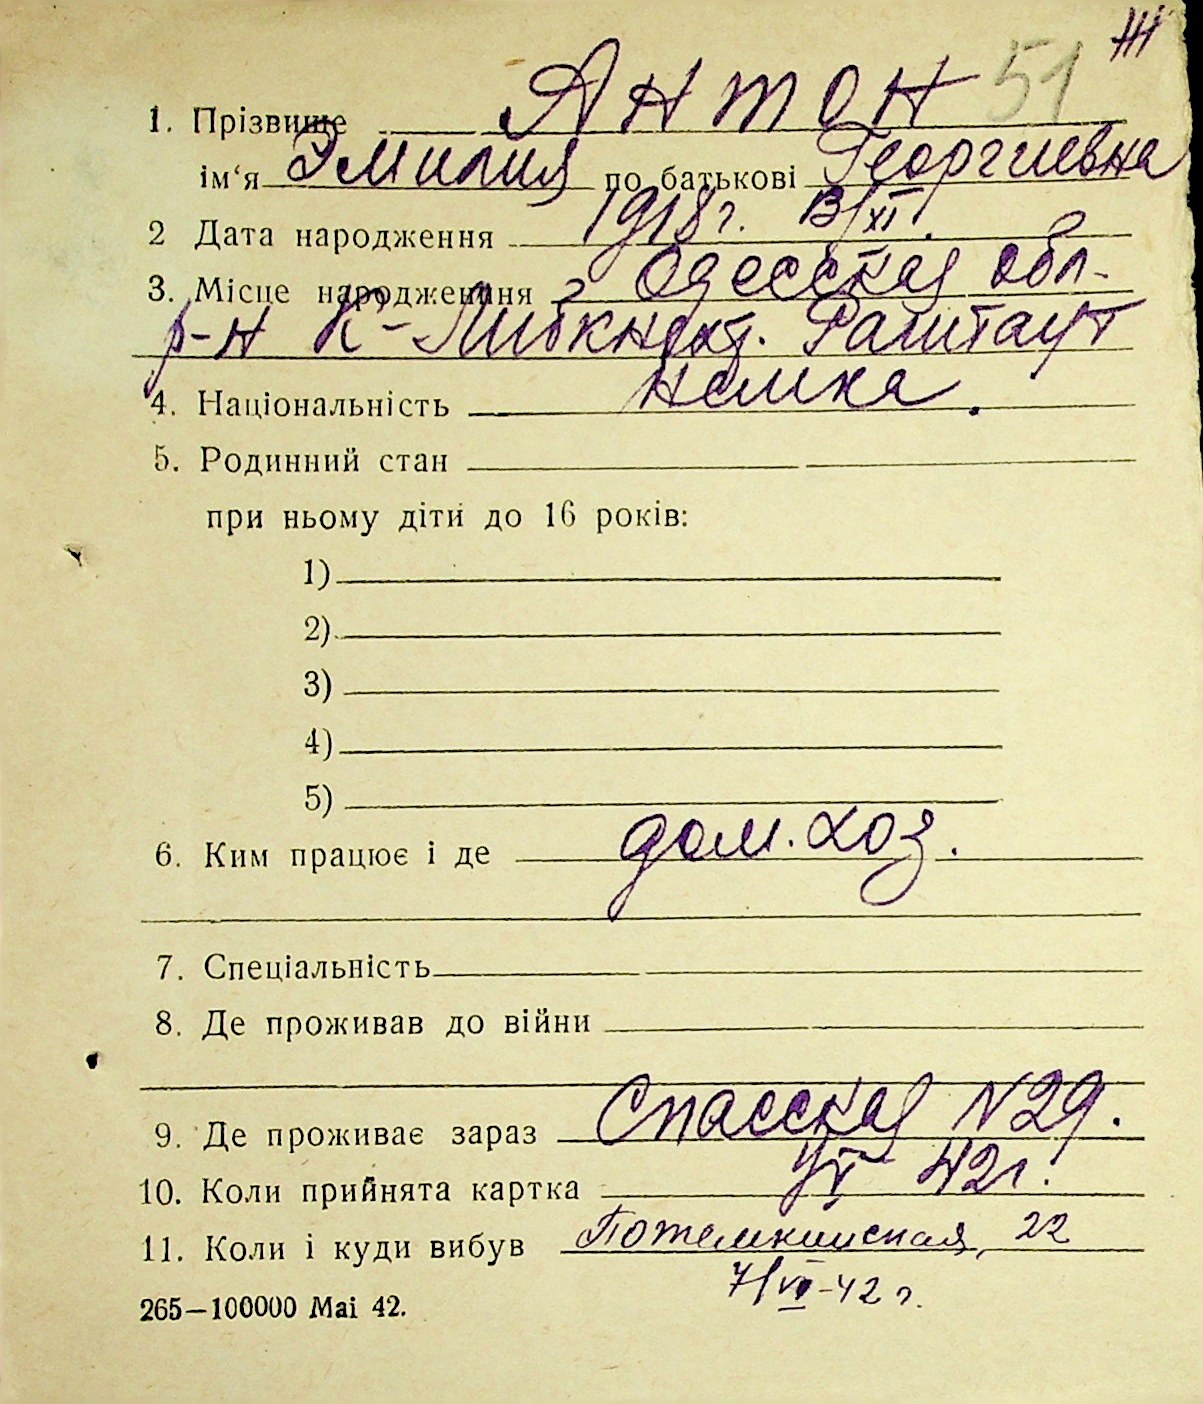 Ж
51
1. Прізвище Антон
ім‘я Эмилия по батькові Георгиевна
2 Дата народження 1918 г. 13/XI.
3. Місце народження Одесская обл-
р-н К-Либкнехт. Раштаут
4. Національність немка.
5. Родинний стан
при ньому діти до 16 років:
1)
2)
3)
4)
5)
6. Ким працює і де дом. хоз.
7. Спеціальність
8. Де проживав до війни
9. Де проживає зараз Спасская N 29.
10. Коли прийнята картка 42 г.
11. Коли і куди вибув Потемкинская, 22
7/VI-42 г.
265—100000 Mai 42.